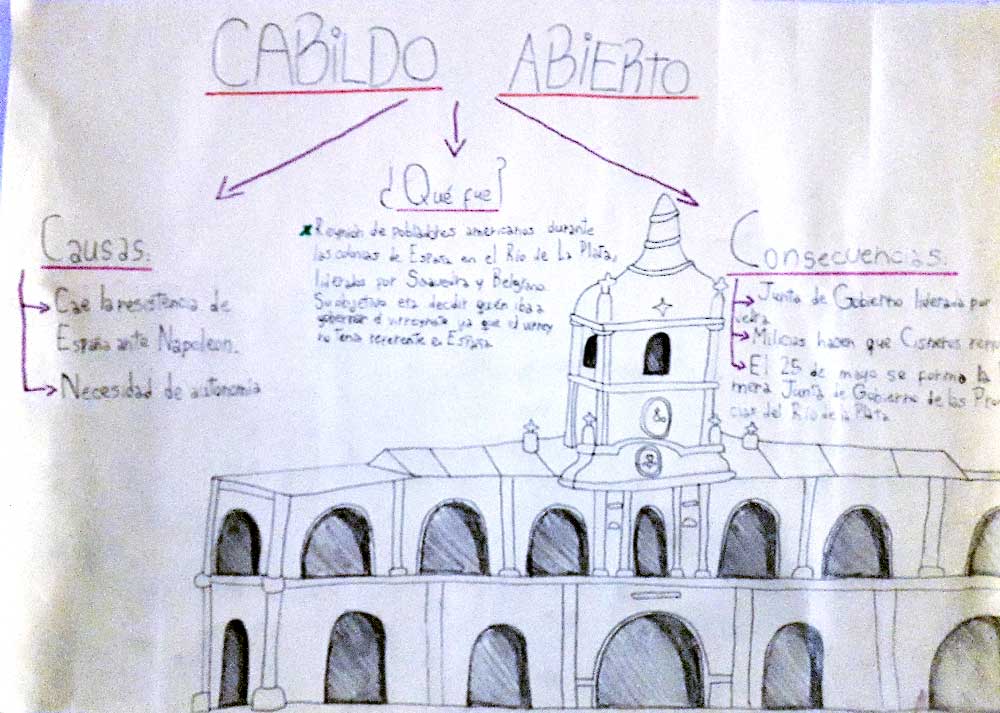 CABILDO ABIERTO
¿Qué fue?
Reunión de pobladores americanos durante
las colonias de España en el Río de La Plata,
liderados por Saavedra y Belgrano.
Su objetivo era decidir quién iba a
gobernar el virreynato ya que el virrey
no tenía referente en España
Causas:
Cae la resistencia de
España ante Napoleon.
Necesidad de autonomía
Consecuencias:
Junta de Gobierno liderada por
vedra
Milicias hacen que Cisneros renu
El 25 de mayo se forma la
mera Junta de Gobierno de las Pro
cias del Río de la Plata